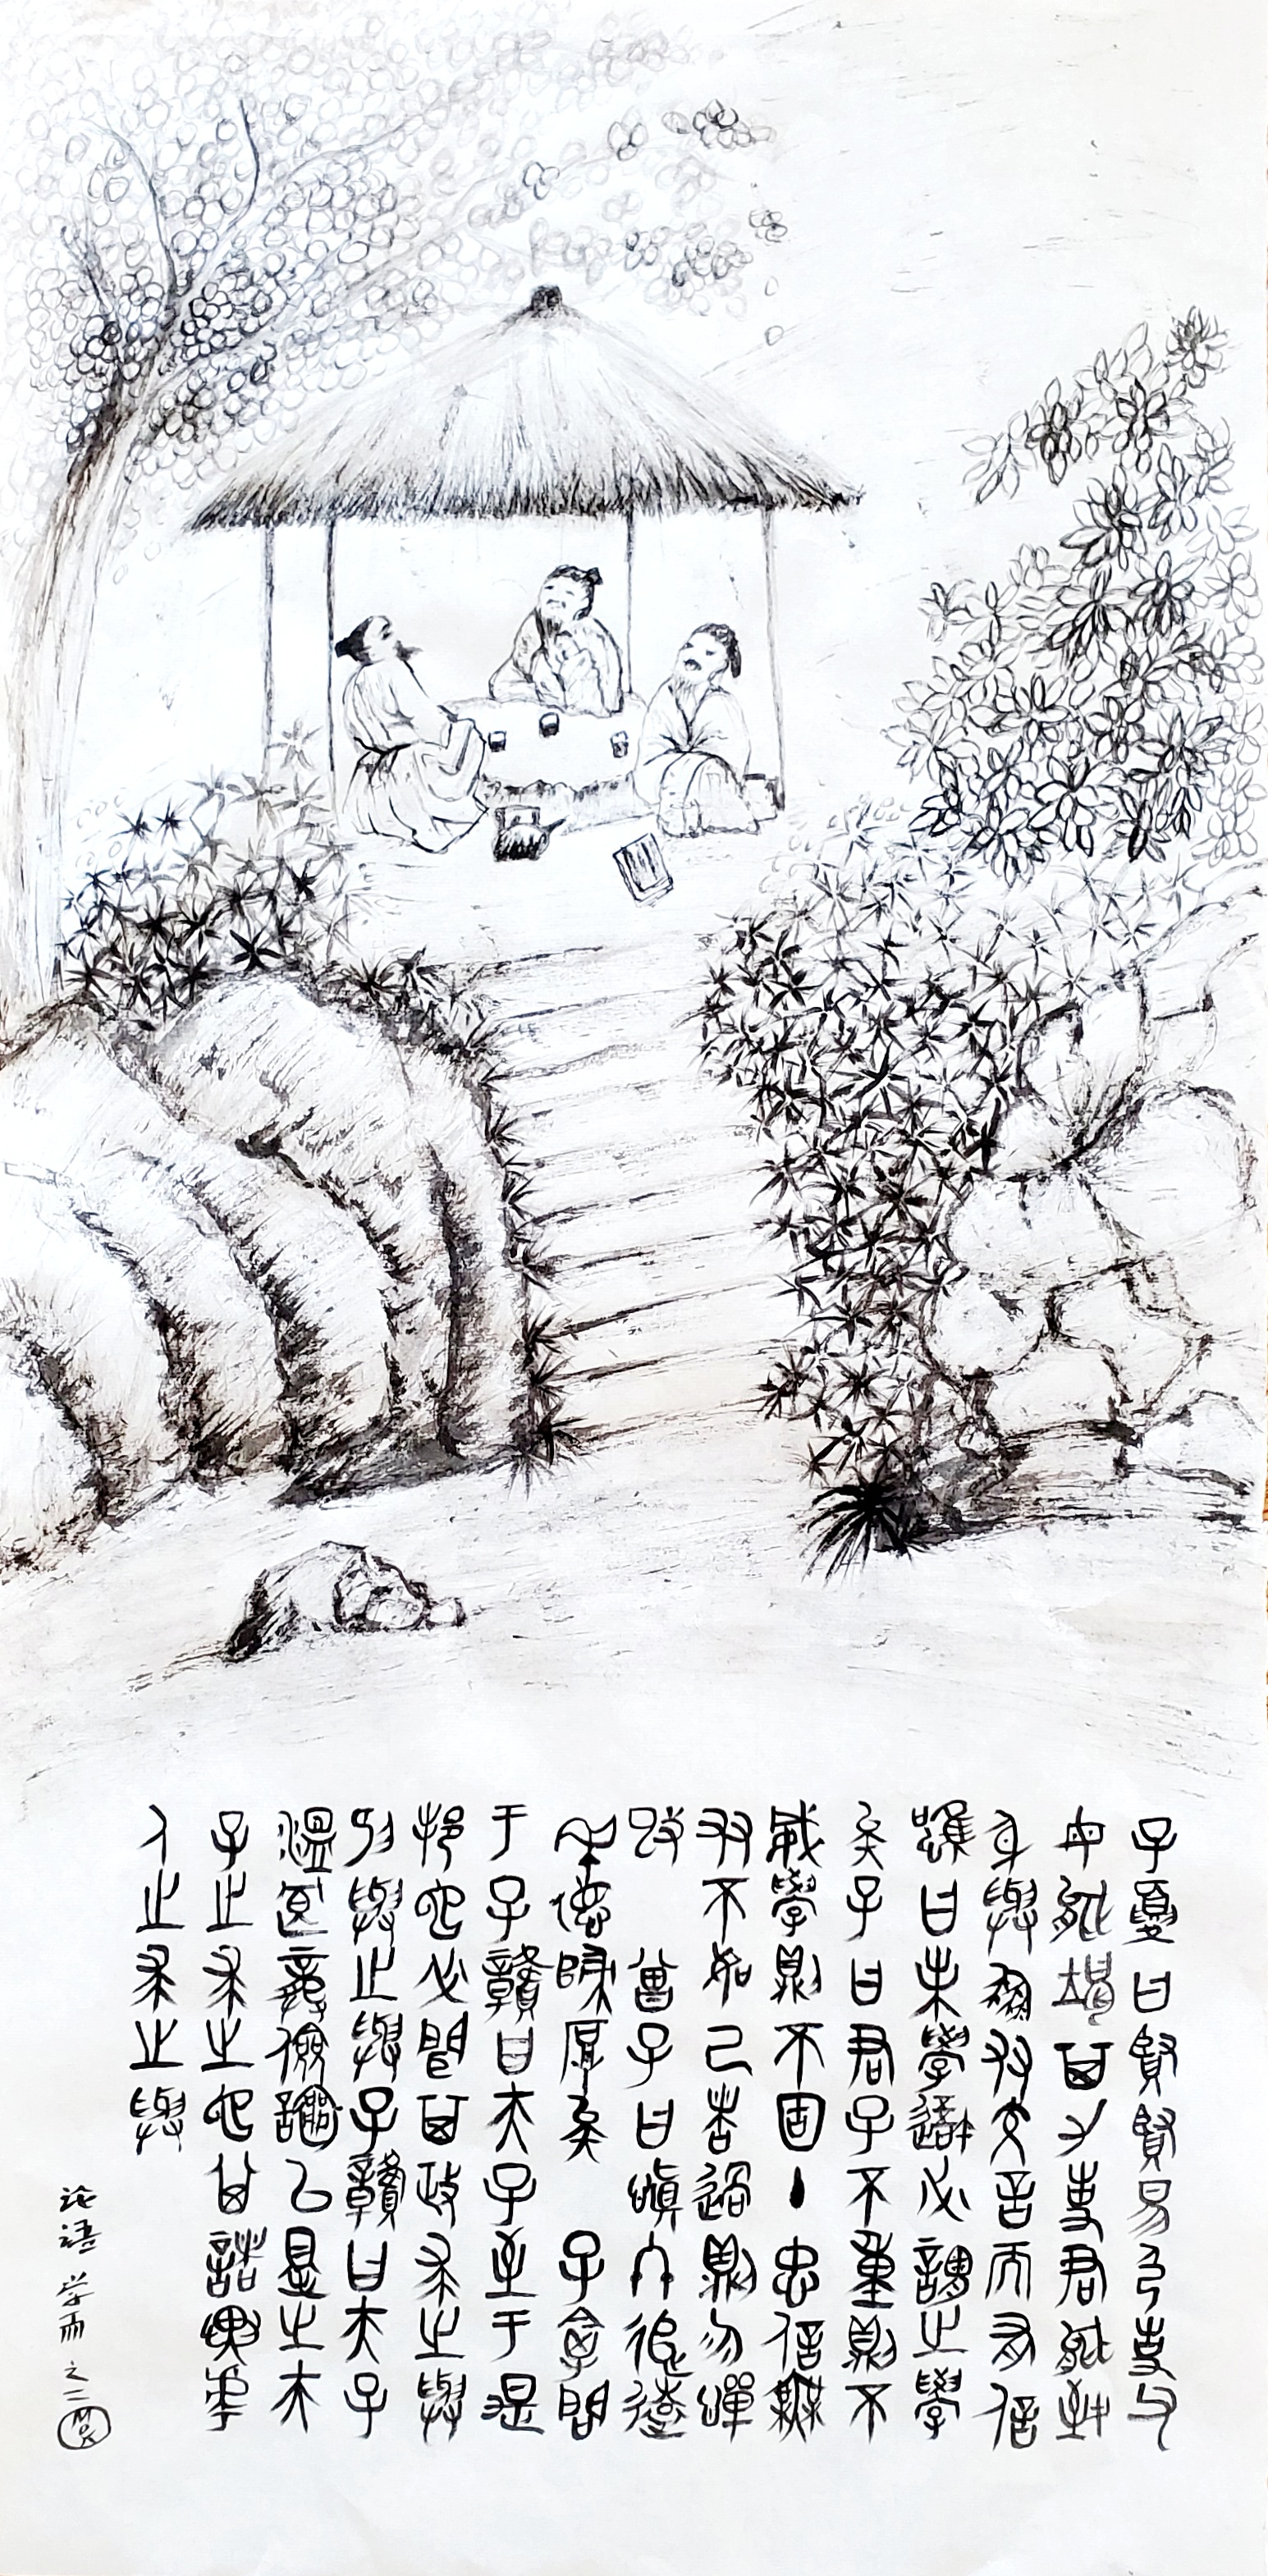 子夏曰賢賢易色事父
母能竭其力事君能致
身與朋友交言而有信
雖曰未學吾必謂之學
矣子曰君子不重則不
威學則不固主忠信無
友不如己者過則勿憚
改 曾子曰慎終追遠
民德歸厚矣 子禽問
于子贛曰夫子至于是
邦也必聞其政求之與
抑與之與子贛曰夫子
溫良恭儉讓以得之夫
子之求之也其諸異乎
人之求之與
论语 学而 之二